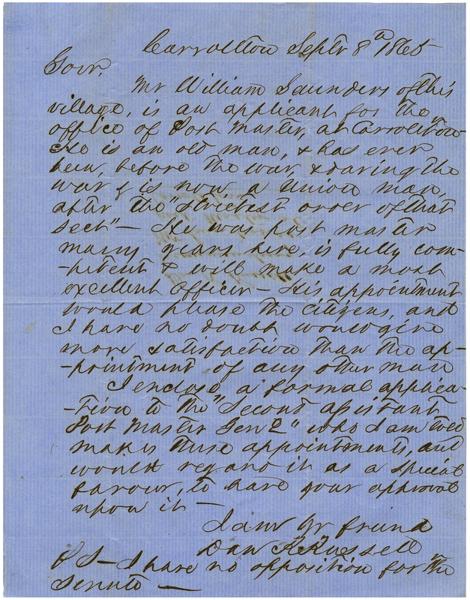 Carrollton Septr 8th 1865
Govr.
Mr William Saunders of this
village, is an applicant for the
office of Post Master, at Carrollton
He is an old man, & has ever
been, before the war, & during the
war & is now a Union man,
after the "strictest order of that
sect" – He was post master
many years here, is fully com-
-petent & will make a most
excellent officer – His appointment
would please the citizens, and
I have no doubt would give
more satisfaction than the ap-
-pointment of any other man
I enclose a formal applica-
-tion to the "Second assistant
Post Master Genl" who I am told
makes these appointments, and
would regard it as a special
favour, to have your approval
upon it –
I am yr friend
Dan R Russell
P S – I have no opposition for the
Senate –